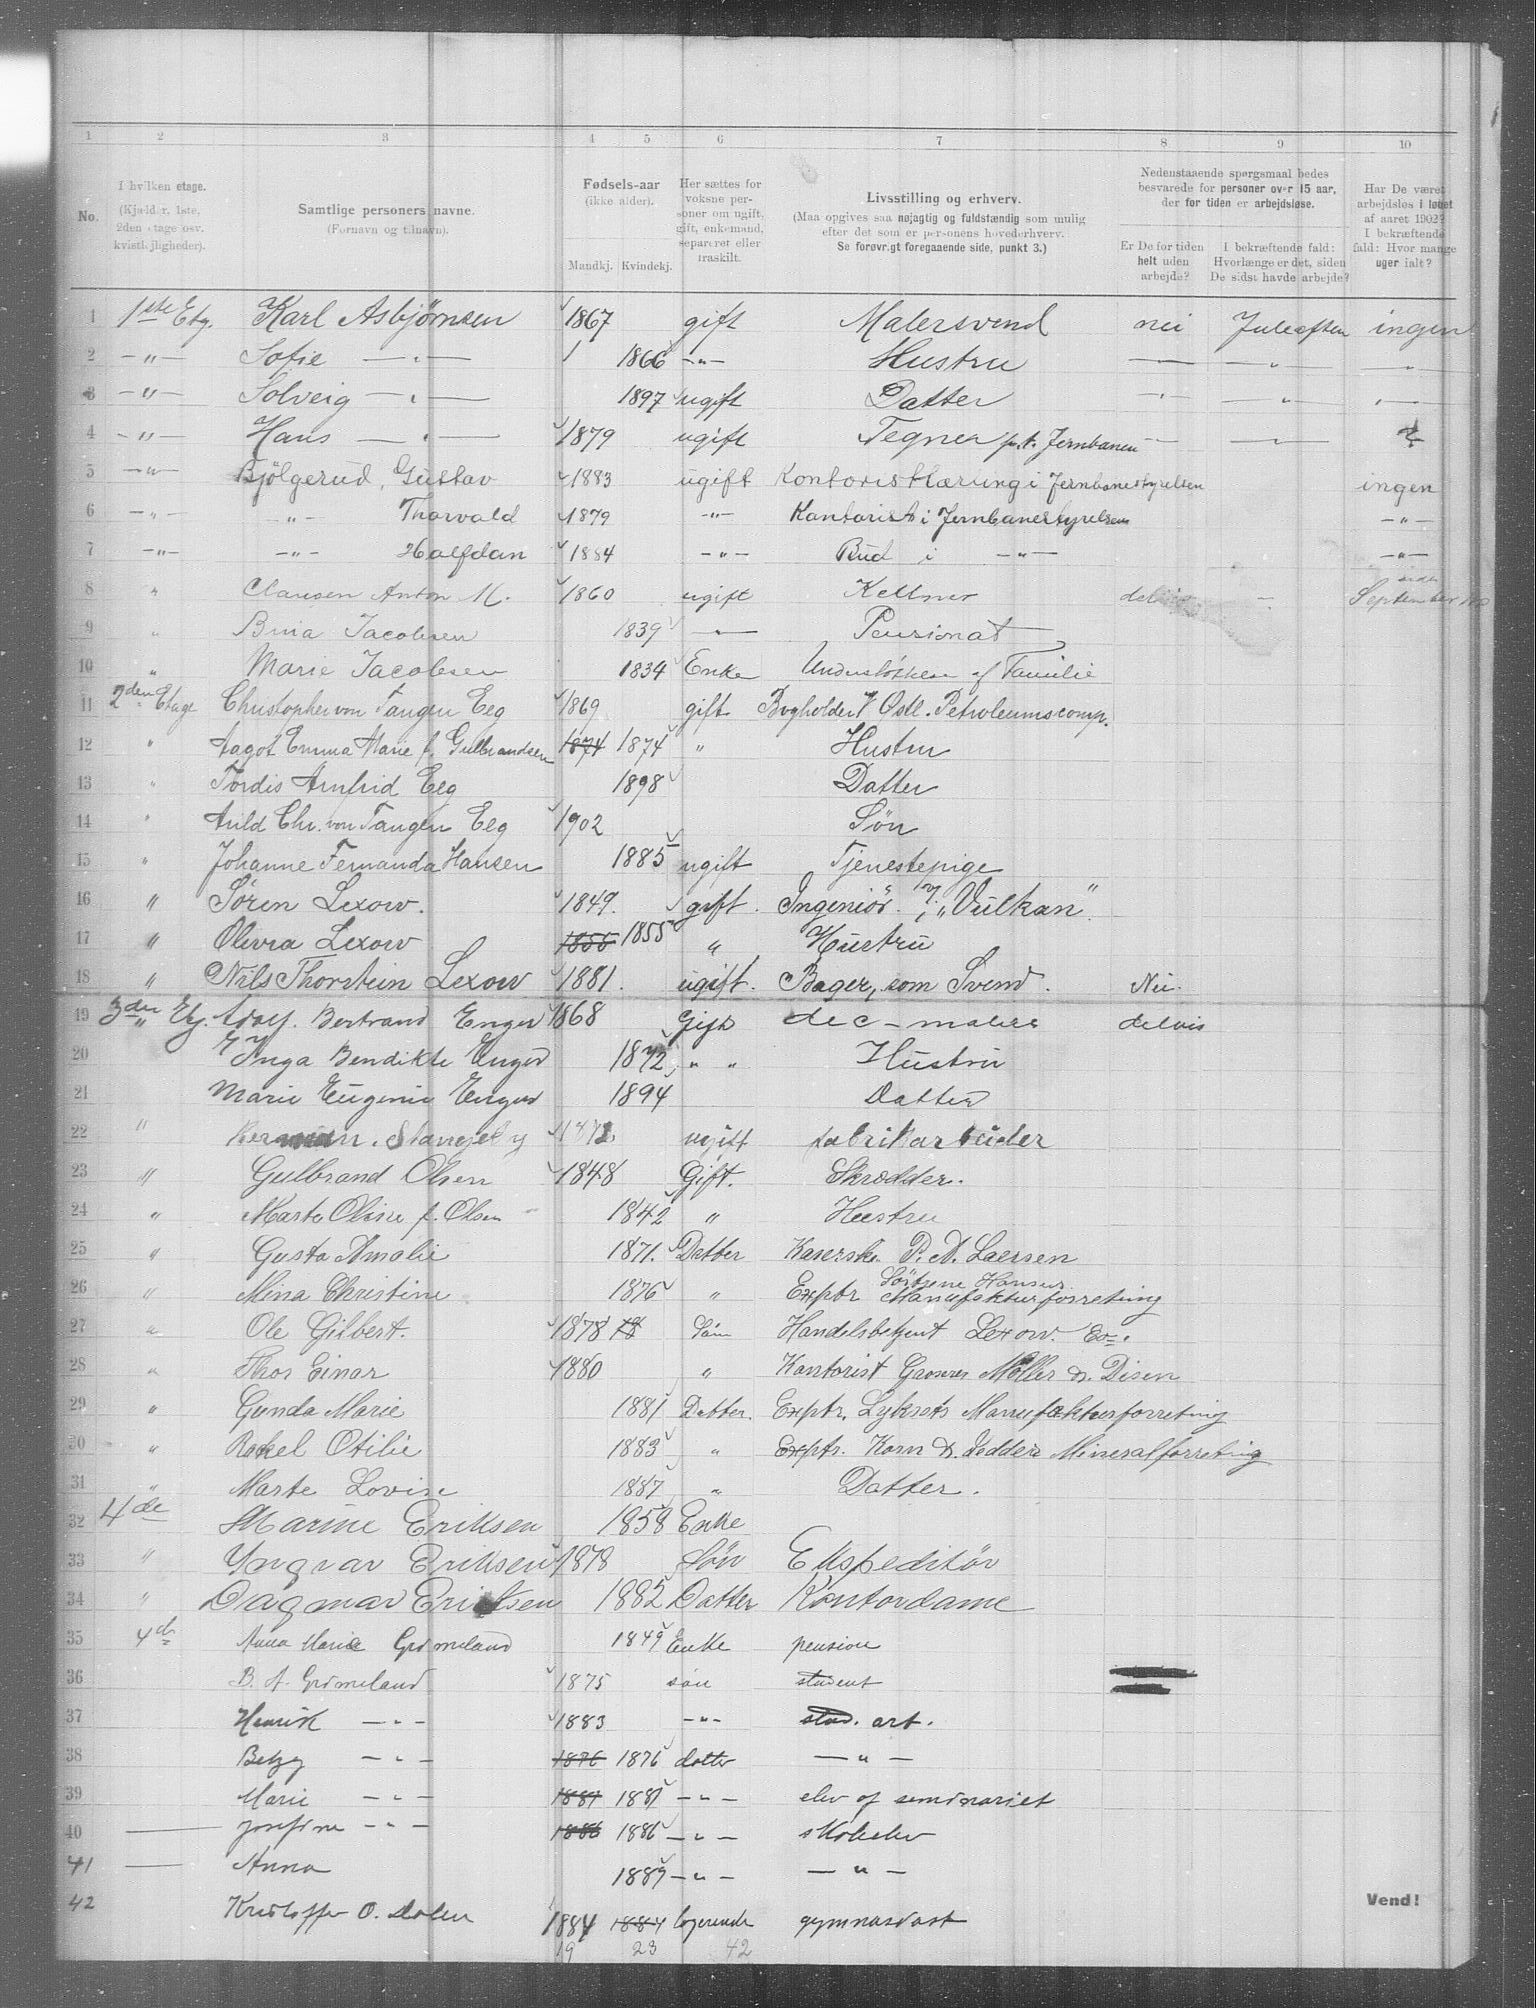 1 2 3 4 5 6 7 8 9 10
No.
I hvilken etage.
(Kjælder, 1ste, 2den etage osv. kvistlejligheder).
Samtlige personers navne.
(Fornavn og tilnavn).
Fødsels-aar
(ikke alder).
Mandkj. Kvindekj.
Her sættes for voksne personer om ugift, gift, enkemand, separeret eller fraskilt.
Livsstilling og erhverv.
(Maa opgives saa nøjagtig og fuldstændig som mulig efter det som er personens hovederhverv.
Se forøvrigt foregaaende side, punkt 3.)
Nedenstaaende spørgsmaal bedes besvarede for personer over 15 aar, der for tiden er arbejdsløse.
Er De for tiden helt uden arbejde?
I bekræftende fald: Hvorlænge er det, siden De sidst havde arbejde?
Har De været arbejdsløs i løbet af aaret 1902? I bekræftende fald: Hvor mange uger ialt?
1 1ste Etg. Karl Asbjørnsen 1867 gift Malersvend nei Juleaften ingen
2 -"- Sofie -"- 1866 -"- Hustru - -"- -"-
3 -"- Solveig -"- 1897 ugift Datter -"- -"- -"-
4 -"- Hans -"- 1879 ugift Tegner p.t. Jernbanen -"- -"-
5 -"- Bjølgerud, Gustav 1883 ugift Kontoristlærling i Jernbanestyrelsen ingen
6 -"- -"- Thorvald 1879 -"- Kontorist i Jernbanestyrelsen -"-
7 -"- -"- Halfdan 1884 -"- Bud i -"- -"-
8 " Clausen Anton M. 1860 ugift Kellner delvis - siden September
9 " Jacobsen 1839 -"- Pensionat
10 " Marie Jacobsen 1834 Enke Understøttes af Familie
11 2den Etage Christopher von Tangen Eeg 1869 gift Bogholder v Østl. Petroleumscomp.
12 " Aagot Emma Marie f. Gulbrandsen 1874 1874 " Hustru
13 " Tordis Arnfrid Eeg 1898 Datter
14 " Arild Chr. von Tangen Eeg 1902 Søn
15 " Johanne Fernanda Hansen 1885 ugift Tjenestepige
16 " Søren Lexow. 1849. gift. Ingeniør v/ "Vulkan".
17 " Olevia Lexow 1855 1855 " Hustru
18 " Nils Thorstein Lexow 1881. ugift. Bager, som Svend. Nei.
19 3den Etg. Adolf. Bertrand Enger 1868 Gift dec-maler delvis
20 Inga Bendikte Enger 1872 " " Hustru
21 Marie Eugenie Enger 1894 Datter
22 " Herman. Stangeby ugift Fabrikarbeider
23 " Gulbrand Olsen 1848 Gift. Skrædder.
24 " Marte Oline f. Olsen 1842 " Hustru
25 " Gusta Amalie 1871. Datter Kaserske P. A. Laersen
26 " Mina Christine 1876 " Exptr Søstrene Hansens Manufakturforretning
27 " Ole Gilbert. 1878 18 Søn Handelsbetjent Lexow. Co.
28 " Thor Einar 1880 " Kontorist Grosserer Møller & Disen
29 " Gunda Marie 1881 Datter. Exptr. Lyksets Manufakturforretning
30 " Rakel Otilie 1883 " Exptr. Korn & Vedders Mineralforretning
31 " Marte Lovise 1887 " Datter.
32 4de Marine Eriksen 1858 Enke
33 " Yngvar Eriksen 1878 Søn Ekspeditør
34 " Dagmar Eriksen 1882 Datter Kontordame
35 4de Anna Marie Grimeland 1849 Enke pension
36 B. A. Grimeland 1875 søn student
37 Henrik -"- 1883 -"- stud. art.
38 Betzy -"- 1876 1876 datter -"-
39 Marie -"- 1881 1881 -"- elev af seminariet
40 Josefine -"- 1886 1886 -"- skoleelev
41 Anna 1889 -"- -"-
42 Kristoffer O. Dalen 1884 1884 logerende gymnasiast
19 23 42
Vend!